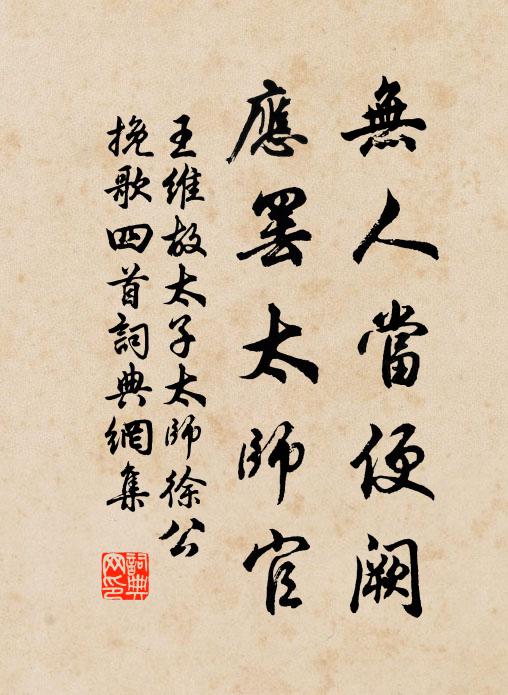 無人當便闕
應罷太師官
王維故太子太師徐公
挽歌四首詞典網集
詞典
网印